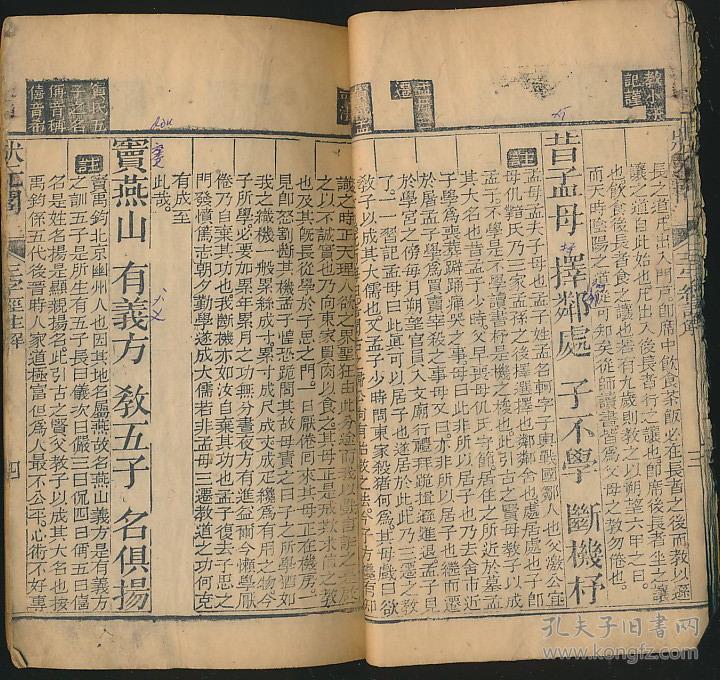 長之道凡出入門戶即席中飲食茶飯必在長者之後而教以遜
讓之道自此始也凡出入後長者行之讓也即席後長者坐之讓
也飲食後長者食之讓也若有九歲則教之以朔望六甲之日
而天時陰陽之道從可知矣從師讀書皆為父母之教勿倦也
昔孟母 擇鄰處 子不學 斷機杼
註
孟母孟夫子母也孟子姓孟名軻字子輿戰國鄒人也父激公宜
母仉氏乃三家孟孫之後擇選擇也鄰鄰舍也處居處也子即
孟子不學是不學讀書杼是機之梭也此引古之賢母教子以成
其大名也昔孟子少時父早喪母仉氏守節居住之所近於墓孟
子學為喪葬躃踴痛哭之事母曰此非所以居子也乃去舍市近
於屠孟子學為買賣屠殺之事母又曰亦非所以居子也繼而遷
於學宮之傍每月朔望官員入文廟行禮拜跪揖讓進退孟子見
了一一習記孟母曰此真可以居子也遂居於此此乃三遷之教
教子以成其大儒也又孟子少時問東家殺猪何為孟母戲曰欲
識之時正天理人欲之界聖狂由此分途而我以戲言誤之
之以不誠實也乃向東家買肉以食之其母正是
也及其既長從學於子思之門一日厭倦回來其母正在機房一
見即怒割斷其機孟子惶恐跪問其故母責之曰子之所學猶如
我之織機一般累絲成寸累寸成尺成丈成疋纔為有用之物今
子所學必要如累年累月之功無分晝夜方有進益爾今懶學厭
倦乃自棄其功也我斷機亦如汝自棄其功也孟子復去子思之
門發憤篤志朝夕勤學遂成大儒若非孟母三遷教道之功何克
有成至
此哉
竇燕山 有義方 教五子 名俱揚
註
竇禹鈞北京幽州人也因其地名屬燕故名燕山義方是有義方
之訓五子是所生有五子長曰儀次曰儼三曰侃四曰偁五曰僖
名是姓名揚是顯親揚名此引古之賢父教子以成其大名也按
禹鈞係五代後晋時人家道極富但為人最不公平心術不好專
狀元閣
三字經註解
四
孔夫子旧书网
www.kongfz.com